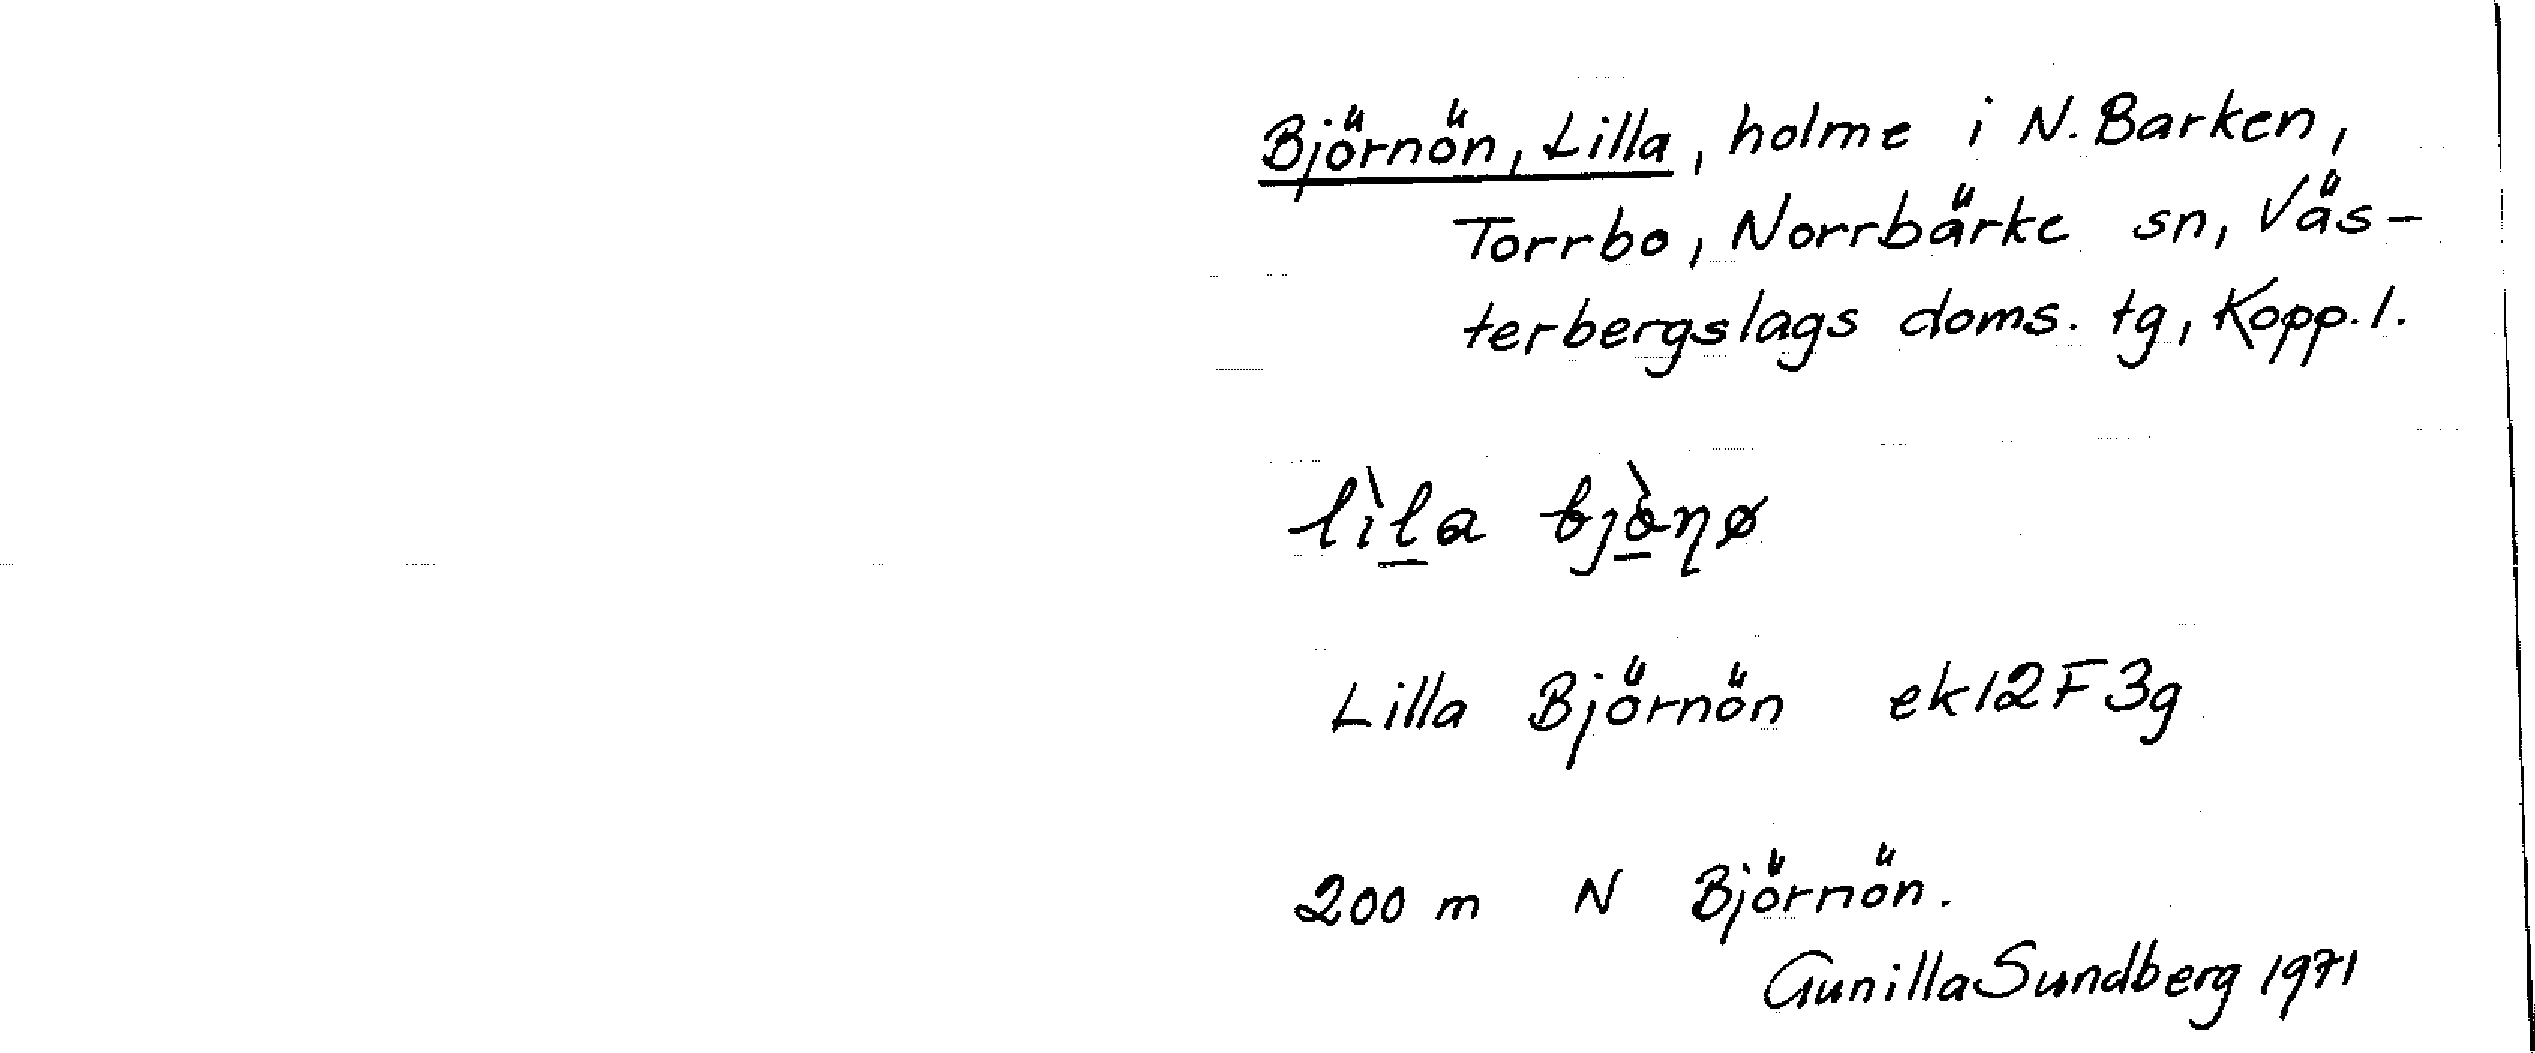 Björnön, Lilla, holme i N. Barken,
Torrbo, Norrbärke sn, Väs-
terbergslags doms. tg, Kopp. l.
Lilla Björnön ek12F3g
200 m N Björnön.
Gunilla Sundberg 1971